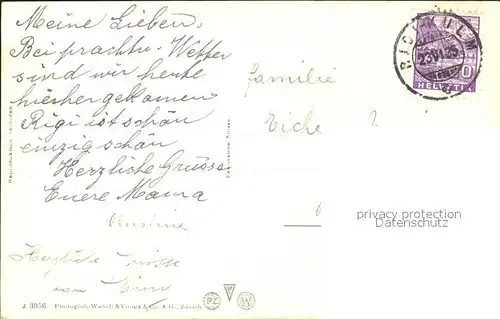 Meine Lieben.
Bei prachtv. Wetter
sind wir heute
hierhergekommen
Rigi ist schön
einzig schön
Herzliche Grüsse
Euere Mama
Herzliche Grüsse
von
Familie
RIGI KULM
HELVETIA
privacy protection
Datenschutz
J 3956 Photoglob-Wehrli & Vouga & Co. A.G., Zürich
PZ
W